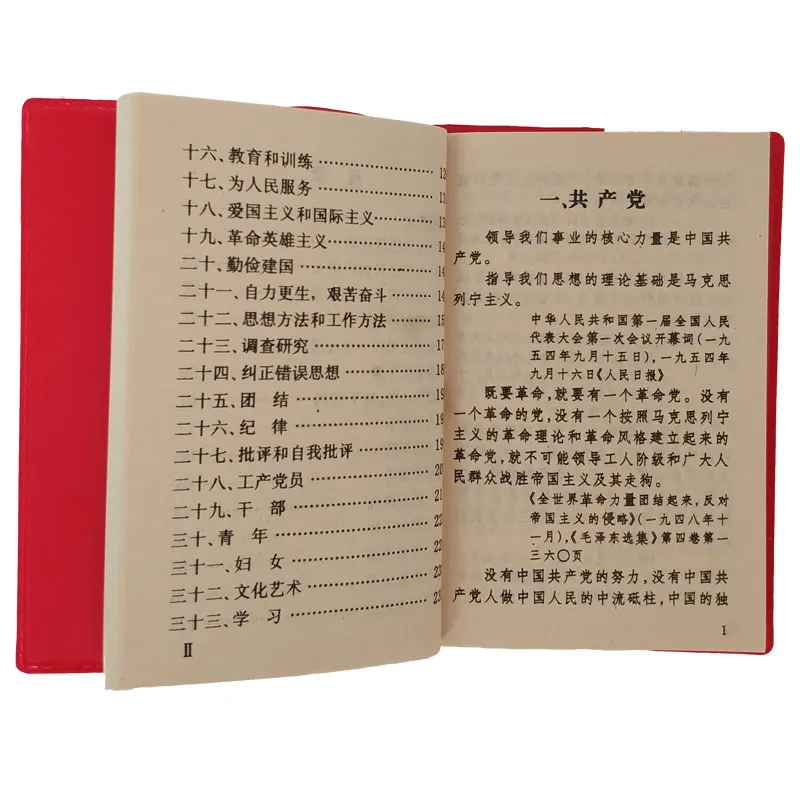 十六、教育和训练……………12
十七、为人民服务……………1
十八、爱国主义和国际主义……13
十九、革命英雄主义……………14
二十、勤俭建国…………………14
二十一、自力更生，艰苦奋斗……14
二十二、思想方法和工作方法……15
二十三、调查研究………………17
二十四、纠正错误思想…………18
二十五、团 结…………………19
二十六、纪 律…………………19
二十七、批评和自我批评………19
二十八、工产党员………………20
二十九、干 部…………………21
三十、青 年……………………22
三十一、妇 女…………………22
三十二、文化艺术………………23
三十三、学 习…………………23
Ⅱ
一、共产党
领导我们事业的核心力量是中国共
产党。
指导我们思想的理论基础是马克思
列宁主义。
中华人民共和国第一届全国人民
代表大会第一次会议开幕词(一九
五四年九月十五日)，一九五四年
九月十六日《人民日报》
既要革命，就要有一个革命党。没有
一个革命的党，没有一个按照马克思列宁
主义的革命理论和革命风格建立起来的
革命党，就不可能领导工人阶级和广大人
民群众战胜帝国主义及其走狗。
《全世界革命力量团结起来，反对
帝国主义的侵略》(一九四八年十
一月)，《毛泽东选集》第四卷第一
三六〇页
没有中国共产党的努力，没有中国共
产党人做中国人民的中流砥柱，中国的独
1